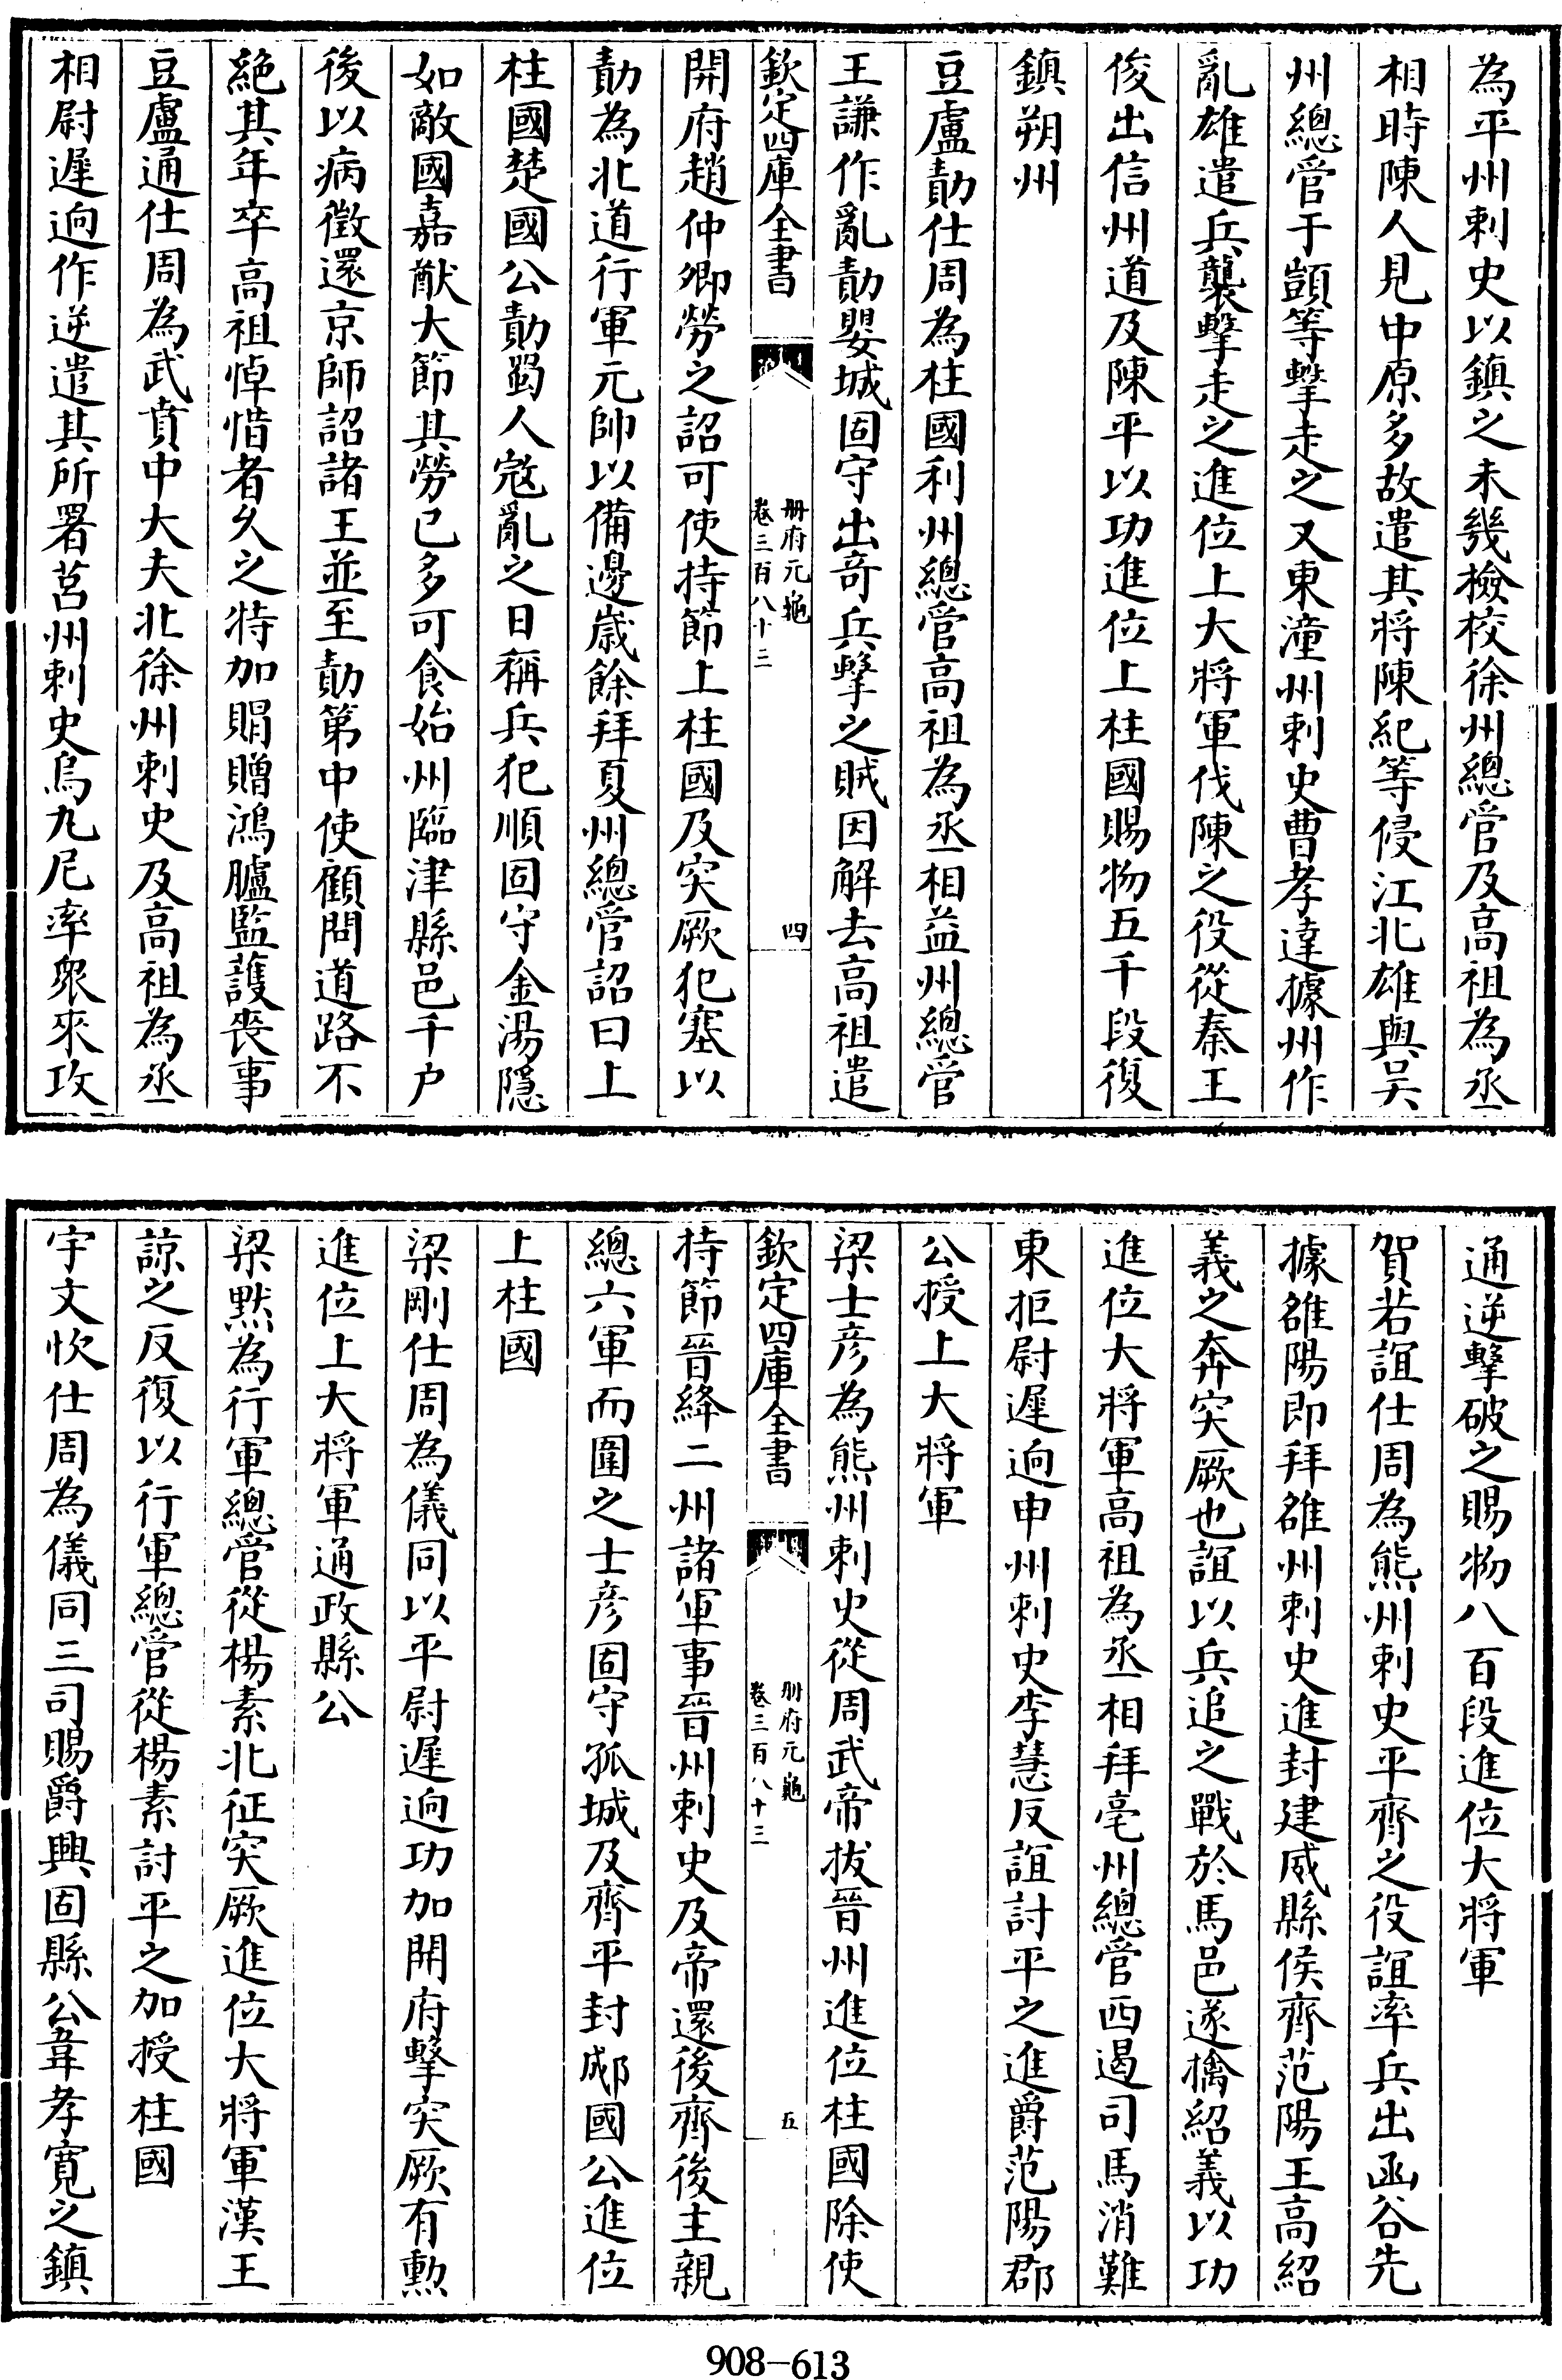 為平州刺史以鎮之未幾檢校徐州總管及高祖為丞
相時陳人見中原多故遣其將陳紀等侵江北雄與吴
州總管于顗等擊走之又東潼州刺史曹孝達據州作
亂雄遣兵襲擊走之進位上大將軍伐陳之役從秦王
俊出信州道及陳平以功進位上柱國賜物五千段復
鎮朔州
豆盧勣仕周為柱國利州總管高祖為丞相益州總管
王謙作亂勣嬰城固守出奇兵擊之賊因解去高祖遣
欽定四庫全書
冊府元龜
卷三百八十三
四
開府趙仲卿勞之詔可使持節上柱國及突厥犯塞以
勣為北道行軍元帥以備邊歲餘拜夏州總管詔曰上
柱國楚國公勣蜀人宼亂之日稱兵犯順固守金湯隱
如敵國嘉猷大節其勞已多可食始州臨津縣邑千户
後以病徵還京師詔諸王並至勣第中使顧問道路不
絶其年卒高祖悼惜者久之特加賵贈鴻臚監護喪事
豆盧通仕周為武賁中大夫北徐州刺史及高祖為丞
相尉遲迥作逆遣其所署莒州刺史烏九尼率衆來攻
通逆擊破之賜物八百段進位大將軍
賀若誼仕周為熊州刺史平齊之役誼率兵出函谷先
據雒陽即拜雒州刺史進封建威縣侯齊范陽王高紹
義之奔突厥也誼以兵追之戰於馬邑遂擒紹義以功
進位大將軍高祖為丞相拜亳州總管西遏司馬消難
東拒尉遲迥申州刺史李慧反誼討平之進爵范陽郡
公授上大將軍
梁士彦為熊州刺史從周武帝拔晉州進位柱國除使
欽定四庫全書
冊府元龜
卷三百八十三
五
持節晉絳二州諸軍事晉州刺史及帝還後齊後主親
總六軍而圍之士彦固守孤城及齊平封郕國公進位
上柱國
梁剛仕周為儀同以平尉遲迥功加開府擊突厥有勲
進位上大將軍通政縣公
梁黙為行軍總管從楊素北征突厥進位大將軍漢王
諒之反復以行軍總管從楊素討平之加授柱國
宇文忺仕周為儀同三司賜爵興固縣公韋孝寛之鎮
908-613